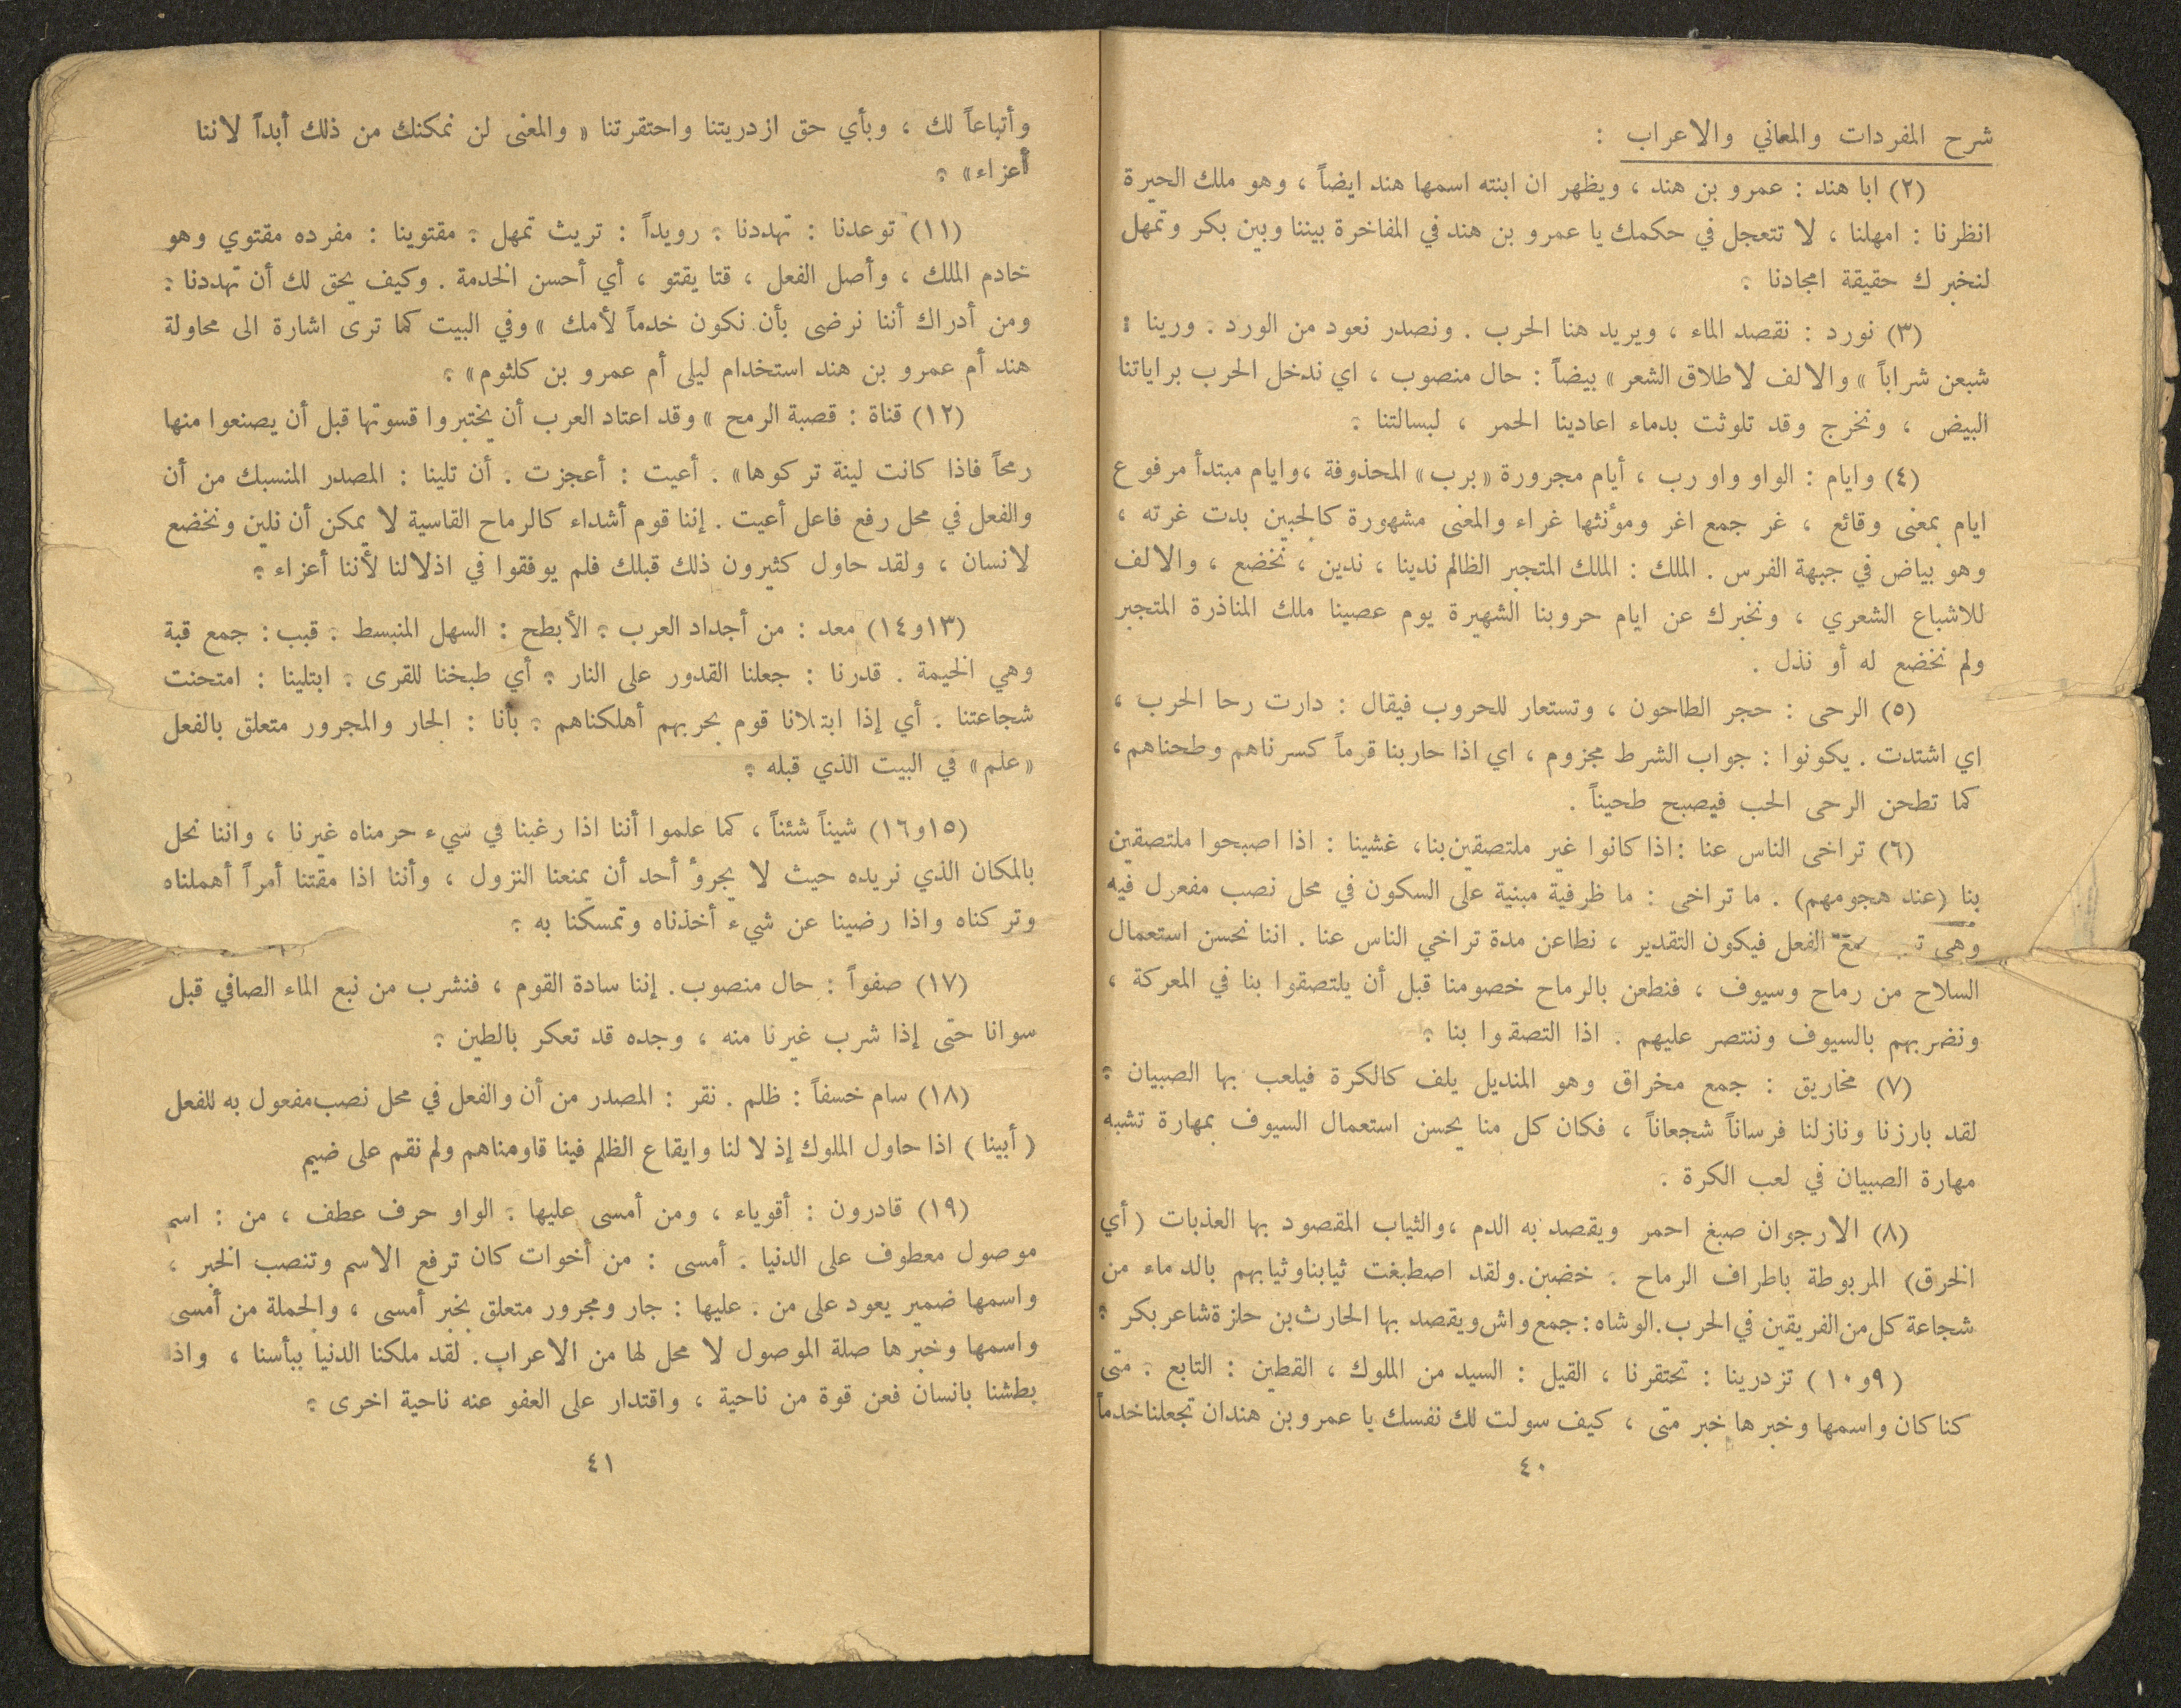 شرح المفردات والمعاني والاعراب :
(٢) ابا هند : عمرو بن هند ، ويظهر ان ابنته اسمها هند ايضاً ، وهو ملك الحيرة
انظرنا : امهلنا ، لا تتعجل في حكمك يا عمرو بن هند في المفاخرة بيننا وبين بكر وتمهل
لنخبرك حقيقة امجادنا .
(٣) نورد : نقصد الماء ، ويريد هنا الحرب . ونصدر نعود من الورد . وروينا :
شبعن شراباً » والالف لاطلاق الشعر » بيضاً : حال منصوب ، اي ندخل الحرب براياتنا
البيض ، ونخرج وقد تلوثت بدماء اعادينا الحمر ، لبسالتنا .
(٤) وايام : الواو واو رب ، أيام مجرورة «برب» المحذوفة ، وايام مبتدأ مرفوع
ايام بمعنى وقائع ، غر جمع اغر ومؤنثها غراء والمعنى مشهورة كالجبين بدت غرته ،
وهو بياض في جبهة الفرس . الملك : الملك المتجبر الظالم ندينا ، ندين ، نخضع ، والالف
للاشباع الشعري ، ونخبرك عن ايام حروبنا الشهيرة يوم عصينا ملك المناذرة المتجبر
ولم نخضع له أو نذل .
(٥) الرحى : حجر الطاحون ، وتستعار للحروب فيقال : دارت رحا الحرب ،
اي اشتدت . يكونوا : جواب الشرط مجزوم ، اي اذا حاربنا قوماً كسرناهم وطحناهم ،
كما تطحن الرحى الحب فيصبح طحيناً .
(٦) تراخى الناس عنا : اذا كانوا غير ملتصقين بنا ، غشينا : اذا اصبحوا ملتصقين
بنا (عند هجومهم) . ما تراخى : ما ظرفية مبنية على السكون في محل نصب مفعول فيه
وهي مع الفعل فيكون التقدير ، نطاعن مدة تراخي الناس عنا . اننا نحسن استعمال
السلاح من رماح وسيوف ، فنطعن بالرماح خصومنا قبل أن يلتصقوا بنا في المعركة ،
ونضربهم بالسيوف وننتصر عليهم . اذا التصقوا بنا .
(٧) مخاريق : جمع مخراق وهو المنديل يلف كالكرة فيلعب بها الصبيان .
لقد بارزنا ونازلنا فرساناً شجعاناً ، فكان كل منا يحسن استعمال السيوف بمهارة تشبه
مهارة الصبيان في لعب الكرة .
(٨) الارجوان صبغ احمر ويقصد به الدم ، والثياب المقصود بها العذبات (أي
الخرق) المربوطة باطراف الرماح . خضبن . ولقد اصطبغت ثيابنا وثيابهم بالدماء من
شجاعة كل من الفريقين في الحرب . الوشاه : جمع واش ويقصد بها الحارث بن حلزة شاعر بكر .
(٩و١٠) تزدرينا : تحتقرنا ، القيل : السيد من الملوك ، القطين : التابع . متى
كنا كان واسمها وخبرها خبر متى ، كيف سولت لك نفسك يا عمرو بن هند ان تجعلنا خدماً
٤٠
وأتباعاً لك ، وبأي حق ازدريتنا واحتقرتنا « والمعنى لن نمكنك من ذلك أبداً لاننا
أعزاء» .
(١١) توعدنا : تهددنا . رويداً : تريث تمهل . مقتوينا : مفرده مقتوي وهو
خادم الملك ، وأصل الفعل ، قتا يقتو ، أي أحسن الخدمة . وكيف يحق لك أن تهددنا .
ومن أدراك أننا نرضى بأن نكون خدماً لأمك » وفي البيت كما ترى اشارة الى محاولة
هند أم عمرو بن هند استخدام ليلى أم عمرو بن كلثوم» .
(١٢) قناة : قصبة الرمح » وقد اعتاد العرب أن يختبروا قسوتها قبل أن يصنعوا منها
رمحاً فاذا كانت لينة تركوها» . أعيت : أعجزت . أن تلينا : المصدر المنسبك من أن
والفعل في محل رفع فاعل أعيت . إننا قوم أشداء كالرماح القاسية لا يمكن أن نلين ونخضع
لانسان ، ولقد حاول كثيرون ذلك قبلك فلم يوفقوا في اذلالنا لأننا أعزاء .
(١٣و١٤) معد : من أجداد العرب . الأبطح : السهل المنبسط . قبب : جمع قبة
وهي الخيمة . قدرنا : جعلنا القدور على النار . أي طبخنا للقرى . ابتلينا : امتحنت
شجاعتنا . أي إذا ابتلانا قوم بحربهم أهلكناهم . بأنا : الجار والمجرور متعلق بالفعل
«علم» في البيت الذي قبله .
(١٥و١٦) شيناً شئناً ، كما علموا أننا اذا رغبنا في شيء حرمناه غيرنا ، واننا نحل
بالمكان الذي نريده حيث لا يجرؤ أحد أن يمنعنا النزول ، وأننا اذا مقتنا أمراً أهملناه
وتركناه واذا رضينا عن شيء أخذناه وتمسكنا به .
(١٧) صفواً : حال منصوب . إننا سادة القوم ، فنشرب من نبع الماء الصافي قبل
سوانا حتى إذا شرب غيرنا منه ، وجده قد تعكر بالطين .
(١٨) سام خسفاً : ظلم . نقر : المصدر من أن والفعل في محل نصب مفعول به للفعل
(أبينا) اذا حاول الملوك إذلالنا وايقاع الظلم فينا قاومناهم ولم نقم على ضيم
(١٩) قادرون : أقوياء ، ومن أمسى عليها . الواو حرف عطف ، من : اسم
موصول معطوف على الدنيا . أمسى : من أخوات كان ترفع الاسم وتنصب الخبر ،
واسمها ضمير يعود على من . عليها : جار ومجرور متعلق بخبر أمسى ، والجملة من أمسى
واسمها وخبرها صلة الموصول لا محل لها من الاعراب . لقد ملكنا الدنيا ببأسنا ، واذا
بطشنا بانسان فعن قوة من ناحية ، واقتدار على العفو عنه ناحية اخرى .
٤١